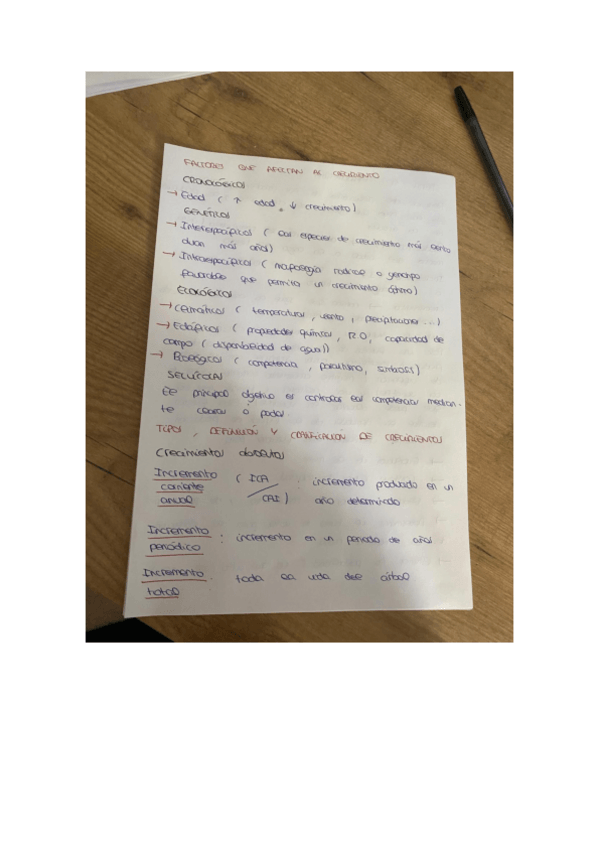 FACTORES QUE AFECTAN AL CRECIMIENTO
CRONOLÓGICOS
→ Edad ( ↑ edad, ↓ crecimiento)
GENÉTICOS
→ Interespecíficos ( las especies de crecimiento más lento
duran más años)
→ Intraespecíficos ( morfología radical o genotipo
favorable que permita un crecimiento óptimo)
ECOLÓGICOS
→ Climáticos ( temperaturas, viento, precipitaciones ...)
→ Edáficos ( propiedades químicas, capacidad de
campo ( disponibilidad de agua))
→ Biológicos ( competencia, parasitismo, simbiosis)
SELVÍCOLAS
El principal objetivo es controlar la competencia median-
te claras o podas.
TIPOS, DEFINICIÓN Y CLASIFICACIÓN DE CRECIMIENTOS
Crecimientos absolutos
Incremento corriente anual ( ICA / CAI ) : incremento producido en un año determinado
Incremento periódico : incremento en un periodo de años
Incremento total : toda la vida del árbol